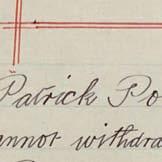 Patrick Po
annot withdra